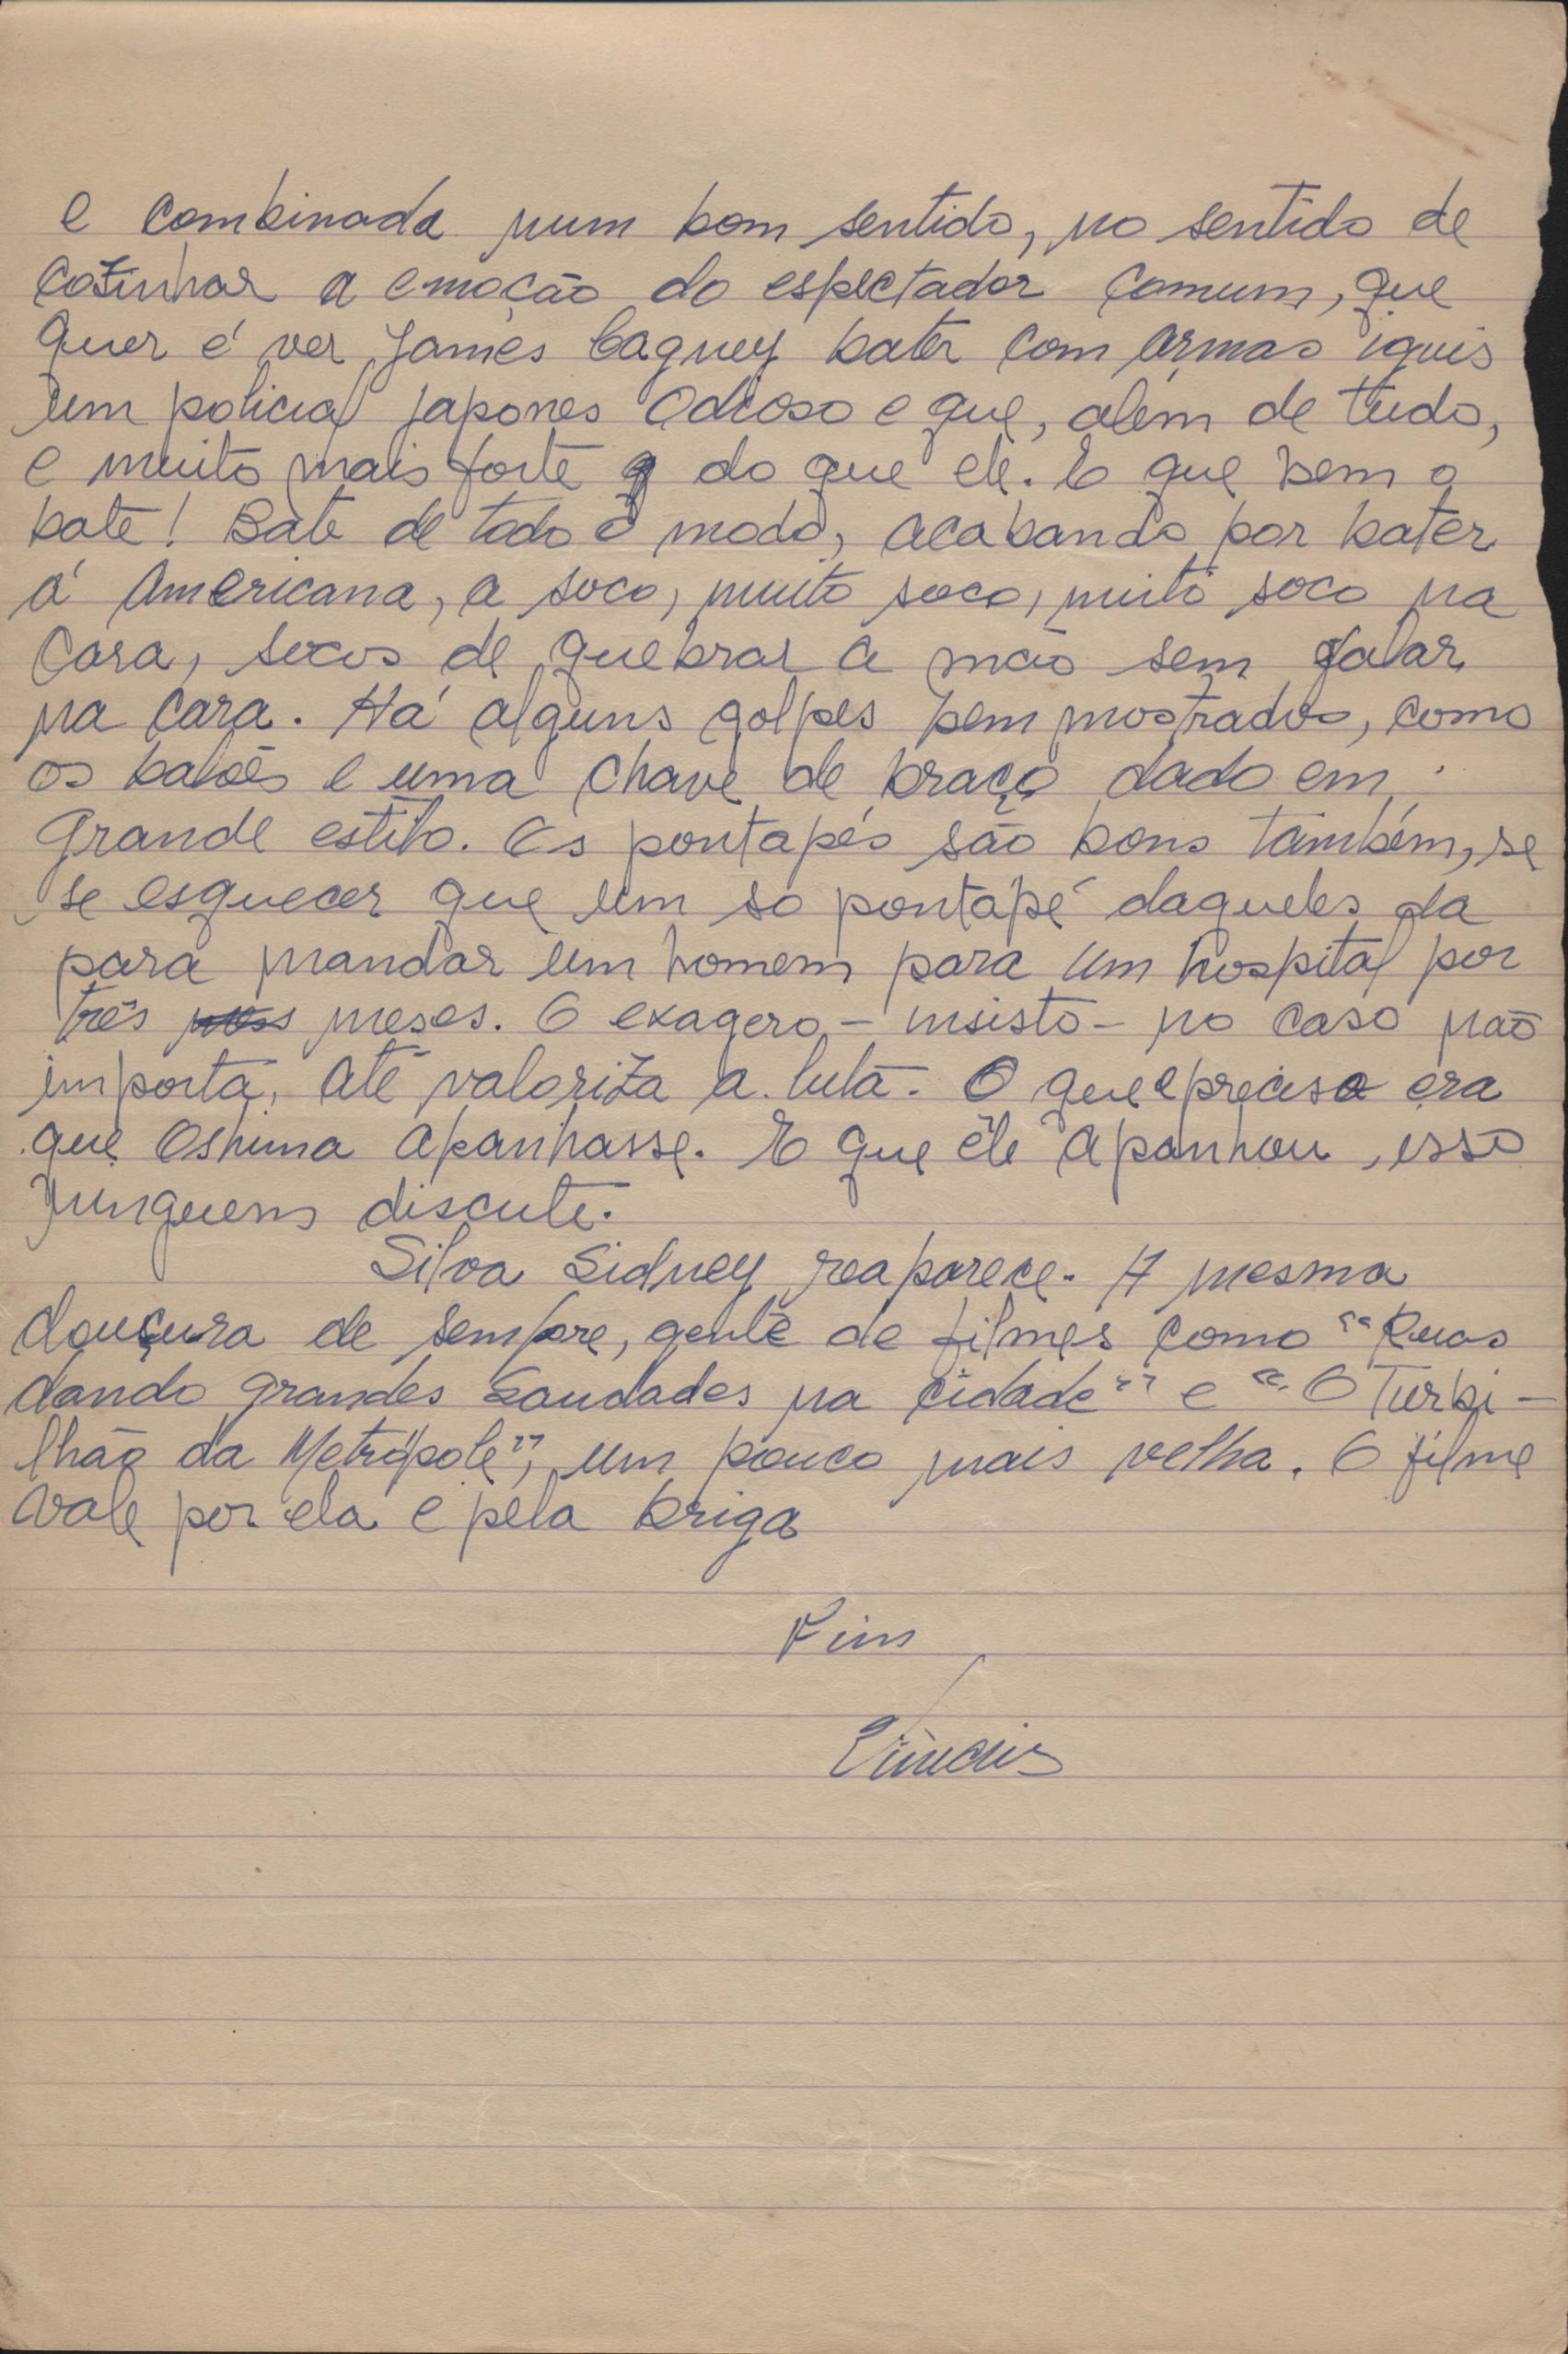 e combinada num bom sentido, no sentido de
cozinhar a emoção do espectador comum, que
quer é ver James Cagney bater com armas iguis
um policial japones odioso e que, além de tudo,
e muito mais forte do que ele. E que bem o
bate! Bate de todo o modo, acabando por bater
á Americana, a soco, muito soco, muito soco na
cara, socos de quebrar a mão sem falar
na cara. Há alguns golpes bem mostrados, como
os balões e uma chave de braço dado em
grande estilo. Os pontapés são bons também, se
se esquecer que um so pontápé daqueles da
para mandar um homem para um hospital por
três meses. O exagero - insisto - no caso não
importa, até valoriza a luta. O que e preciso era
que Oshima apanhasse. E que êle apanhou, isso
ninguem discute.
Silva Sidney reaparece. A mesma
douçura de sempre, gente de filmes como "Ruas
dando grandes Saudades na cidade" e "O Turbi-
lhão da Metrópole", um pouco mais velha. O filme
vale por ela e pela briga
Fim
Vinicius